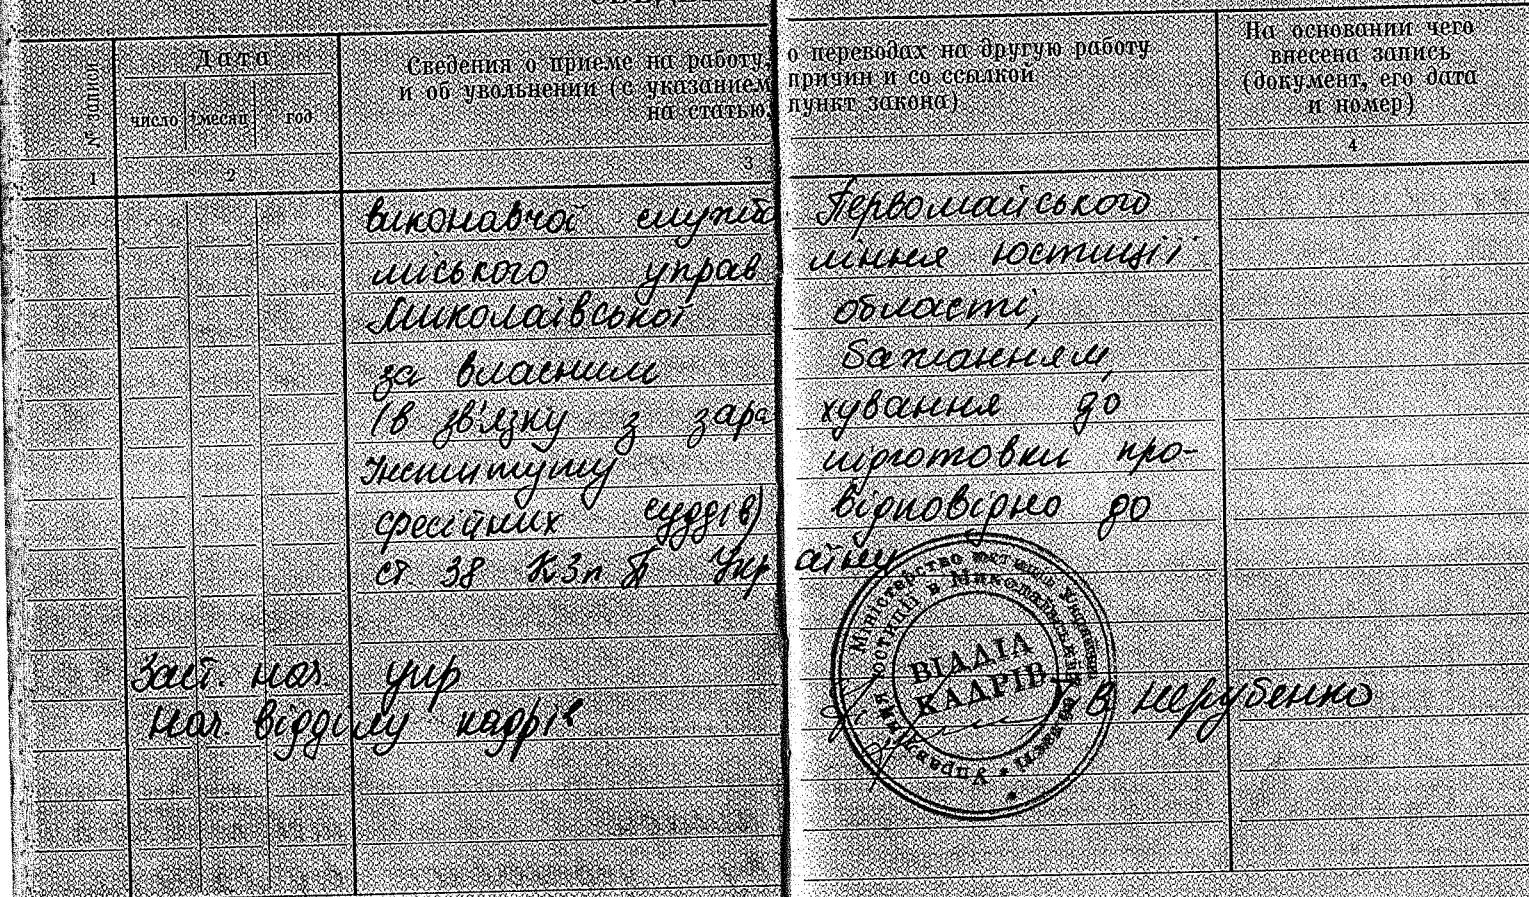 № записи
Дата
число
месяц
год
Сведения о приеме на работу, о переводах на другую работу
и об увольнении (с указанием причин и со ссылкой
на статью, пункт закона)
На основании чего
внесена запись
(документ, его дата
и номер)
1
2
3
4
виконавчої служби Первомайського
міського управ ління юстиції
Миколаївської області,
за власним бажанням,
(в зв'язку з зара хуванням до
Інституту підготовки про-
фесійних суддів) відповідно до
ст. 38 КЗпП Укр аїни
Заст. нач. упр
нач. відділу кадрів В Нерубенко
Міністерство юстиції України
Управління юстиції в Миколаївській області
ВІДДІЛ
КАДРІВ